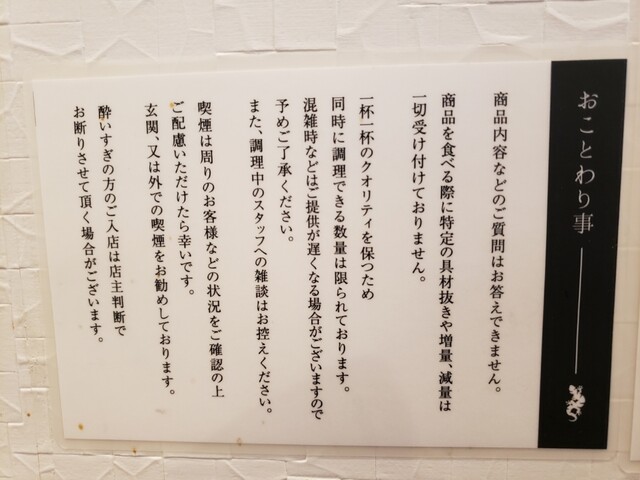 おことわり事
商品内容などのご質問はお答えできません。
商品を食べる際に特定の具材抜きや増量、減量は
一切受け付けておりません。
一杯一杯のクオリティを保つため
同時に調理できる数量は限られております。
混雑時などはご提供が遅くなる場合がございますので
予めご了承ください。
また、調理中のスタッフへの雑談はお控えください。
喫煙は周りのお客様などの状況をご確認の上
ご配慮いただけたら幸いです。
玄関、又は外での喫煙をお勧めしております。
酔いすぎの方のご入店は店主判断で
お断りさせて頂く場合がございます。